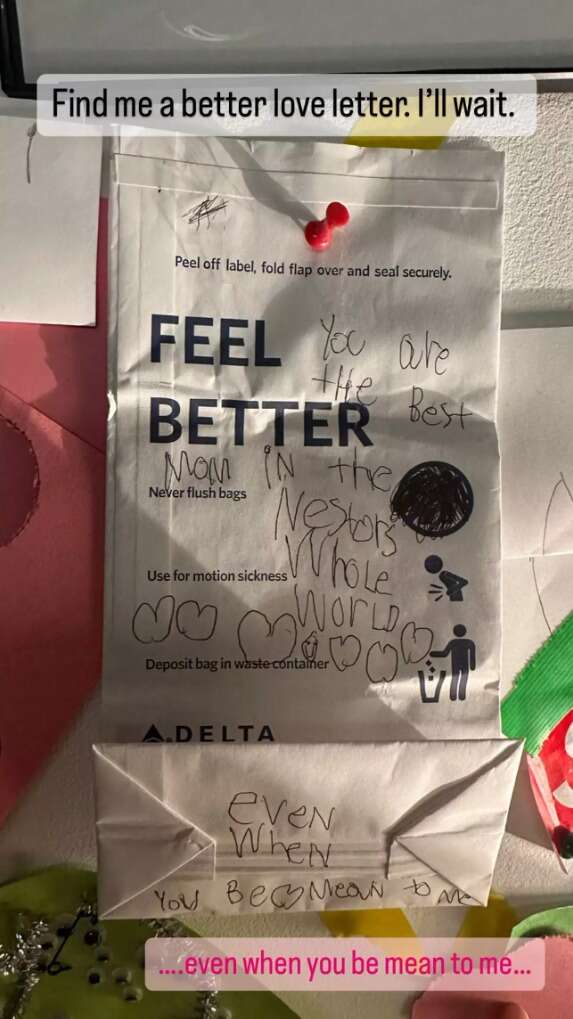 Find me a better love letter. I'll wait.
Peel off label, fold flap over and seal securely.
FEEL
You are
the
BETTER
Best
Mom iN the
Never flush bags
Whole
Use for motion sickness
World
Deposit bag in waste container
DELTA
eveN
WheN
You Be MeaN to Me
....even when you be mean to me...